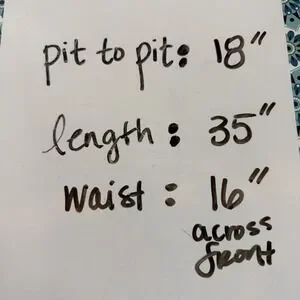 pit to pit: 18"
length: 35"
waist: 16"
across
front